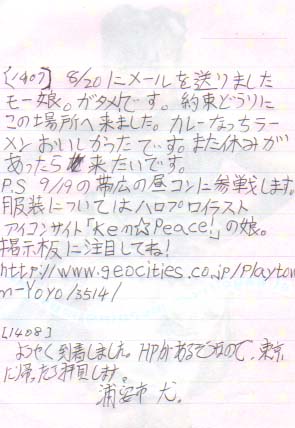 [1407] 8/20にメールを送りました
モー娘。ガタメです。約束どうりに
この場所へ来ました。カレーなっちラー
メンおいしかったです。また休みが
あったら来たいです。
P.S 9/19の帯広の昼コンに参戦します。
服装についてはハロプロイラスト
アイコンサイト「Ken☆Peace!」の娘。
掲示板に注目してね!
http://www.geocities.co.jp/Playtow
n-Yoyo/3514/
[1408]
ようやく到着しました。HPがあるそうなので、東京
に帰ったら拝見します。
浦安市 犬。